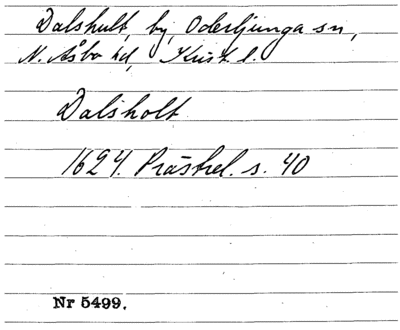 Dalshult, by, Oderljunga sn,
N. Åsbo hd, Krist. l.
Dalsholt
1624. Prästrel. s. 40
Nr 5499.